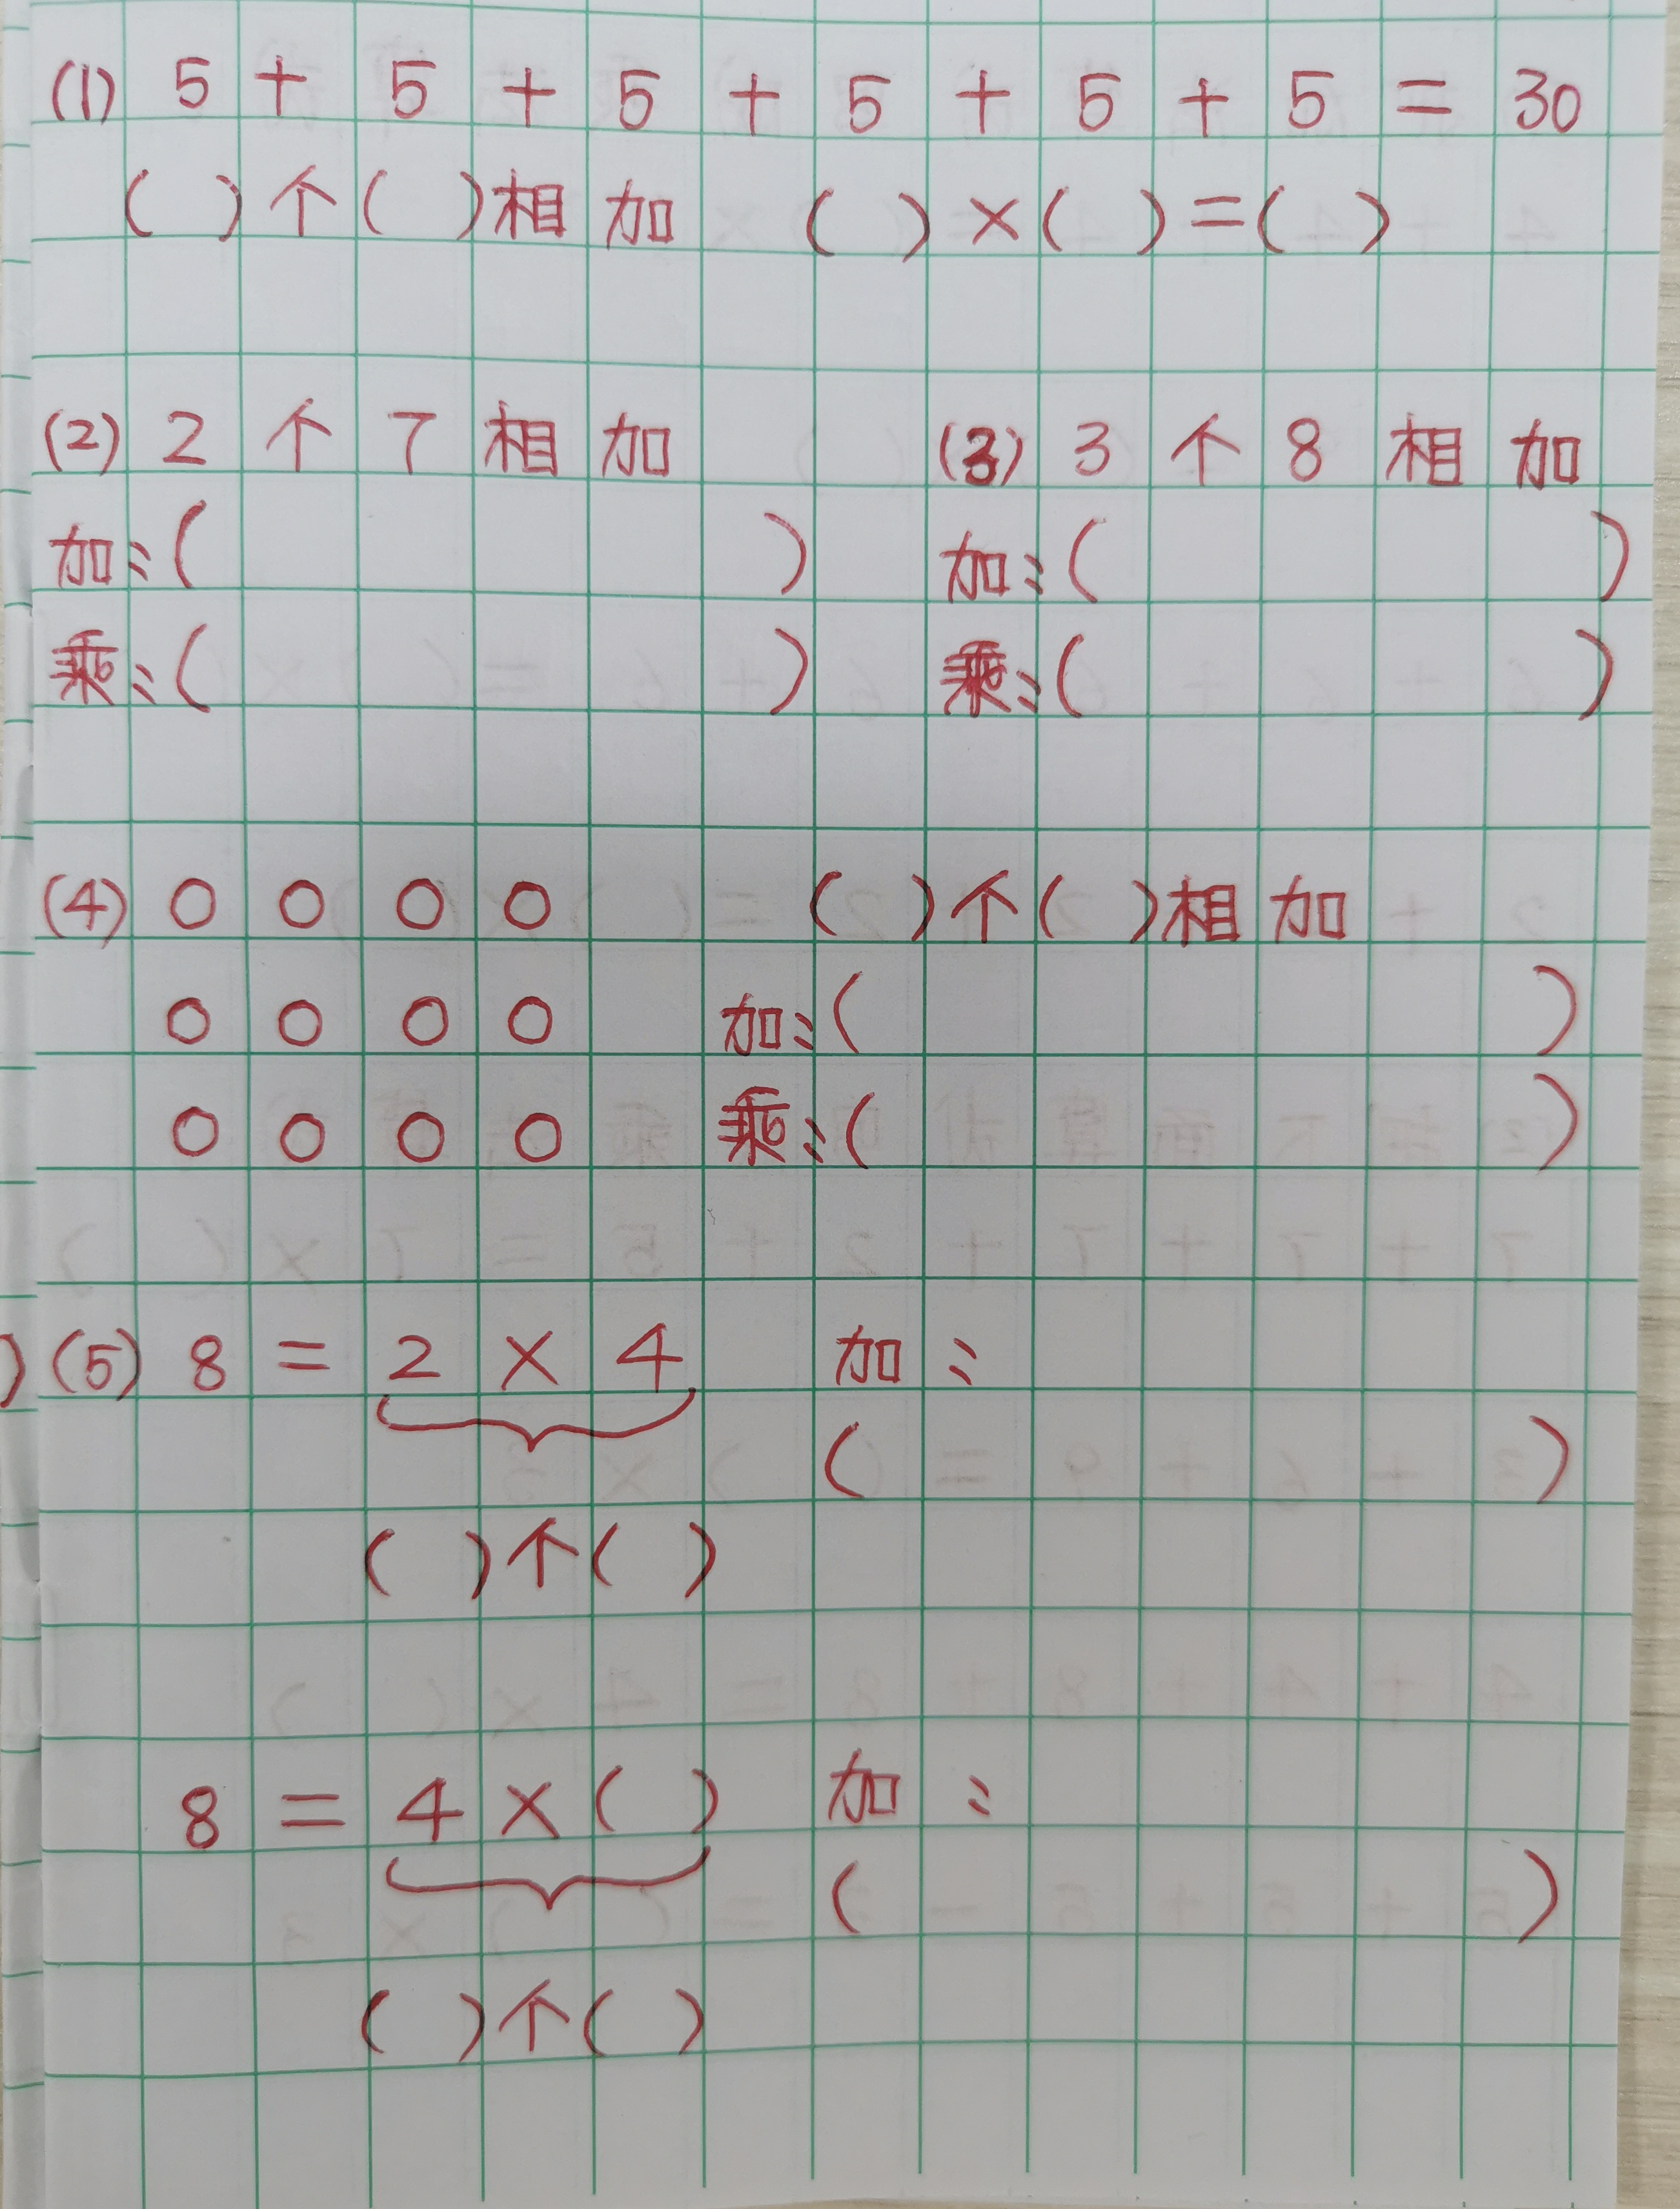 (1) 5 + 5 + 5 + 5 + 5 + 5 = 30
( )个( )相加 ( )×( )=( )
(2) 2个7相加 (3) 3个8相加
加:( ) 加:( )
乘:( ) 乘:( )
(4) ○ ○ ○ ○ ( )个( )相加
○ ○ ○ ○ 加:( )
○ ○ ○ ○ 乘:( )
) (5) 8 = 2 × 4 加:
( )
( )个( )
8 = 4 ×( ) 加:
( )
( )个( )